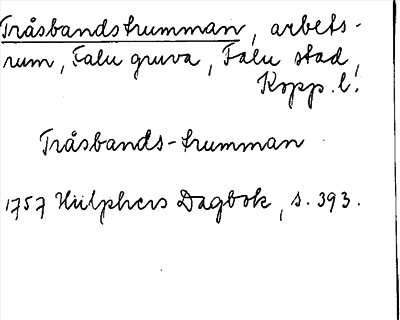 Tråsbandstrumman, arbets-
rum, Falu gruva, Falu stad,
Kopp. l.
Tråsbands-trumman
1757 Hülphers Dagbok, s. 393.